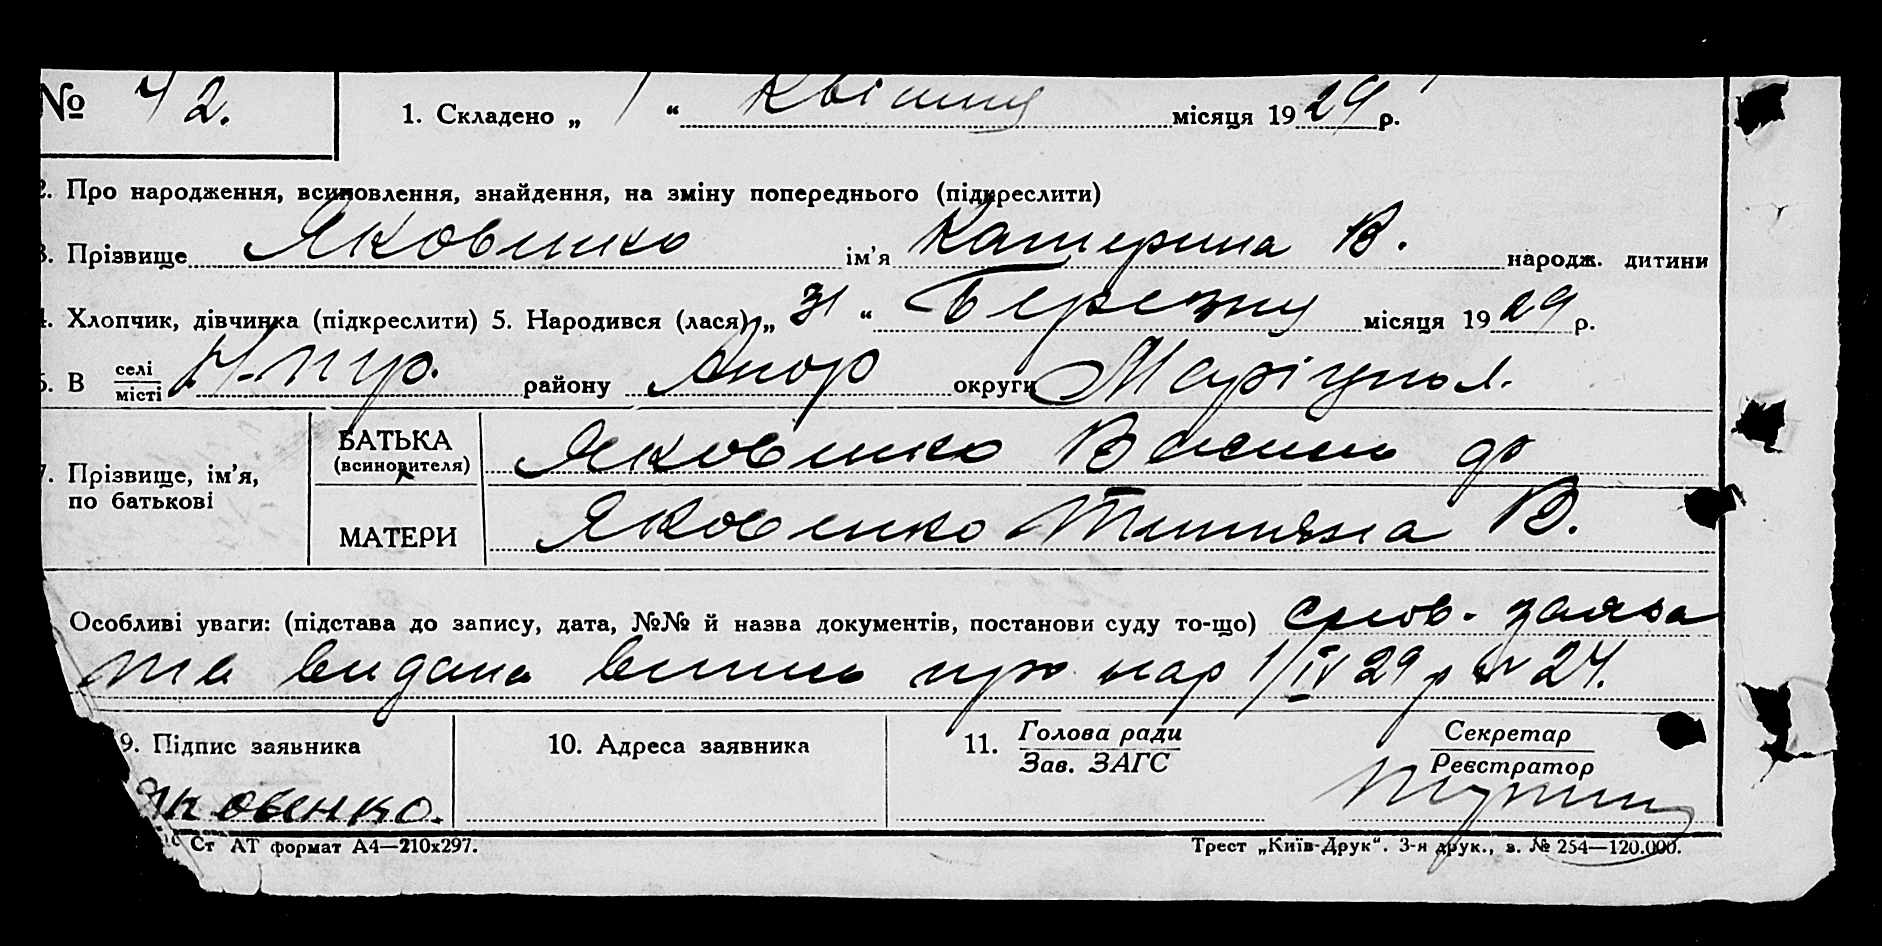 № 42.
1. Складено „ 1 “ Квітня місяця 1929 р.
2. Про народження, всиновлення, знайдення, на зміну попереднього (підкреслити)
3. Прізвище Яковенко ім’я Катерина В. народж. дитини
4. Хлопчик, дівчинка (підкреслити) 5. Народився (лася) „ 31 “ Березня місяця 1929 р.
6. В селі місті району округи Маріупол.
7. Прізвище, ім’я, по батькові
БАТЬКА (всиновителя) Яковенко Василь
МАТЕРИ Яковенко Татьяна В.
Особливі уваги: (підстава до запису, дата, №№ й назва документів, постанови суду то-що) слов. заява
та видана випись про нар 1/IV 29 р № 24.
9. Підпис заявника
10. Адреса заявника
11. Голова ради
Зав. ЗАГС
Секретар
Реєстратор
Яковенко.
Ст АТ формат А4—210х297.
Трест „Київ-Друк“. 3-я друк., з. № 254—120.000.